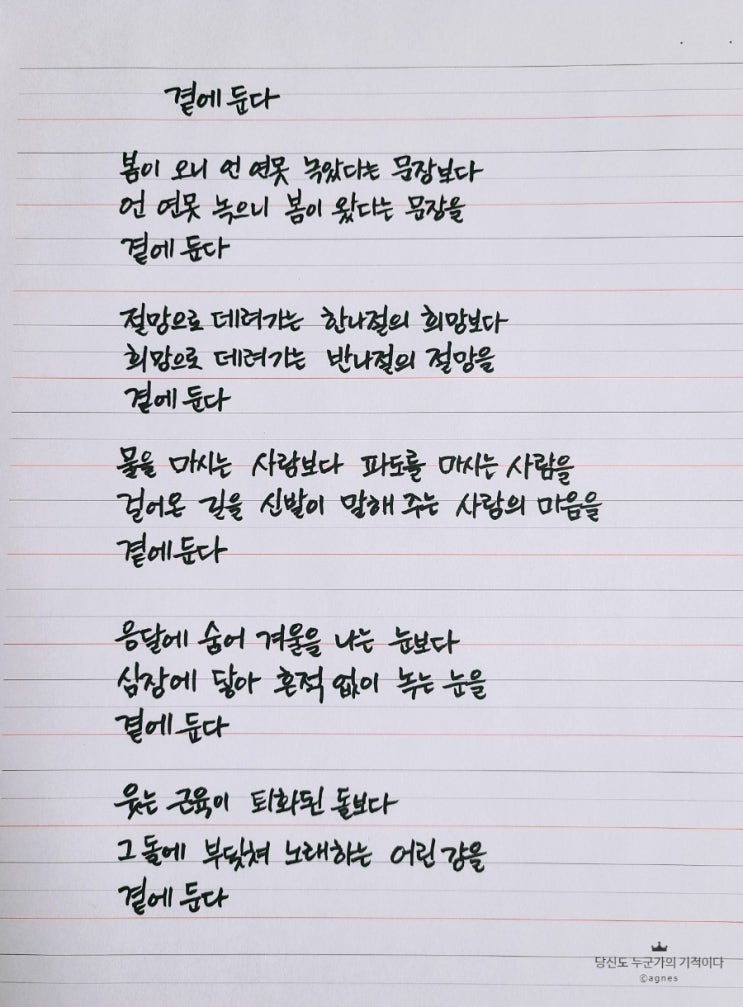 곁에 둔다
봄이 오니 언 연못 녹았다는 문장보다
언 연못 녹으니 봄이 왔다는 문장을
곁에 둔다
절망으로 데려가는 한나절의 희망보다
희망으로 데려가는 반나절의 절망을
곁에 둔다
물을 마시는 사람보다 파도를 마시는 사람을
걸어온 길을 신발이 말해 주는 사람의 마음을
곁에 둔다
응달에 숨어 겨울을 나는 눈보다
심장에 닿아 흔적 없이 녹는 눈을
곁에 둔다
웃는 근육이 퇴화된 돌보다
그 돌에 부딪쳐 노래하는 어린 강을
곁에 둔다
당신도 누군가의 기적이다
©agnes